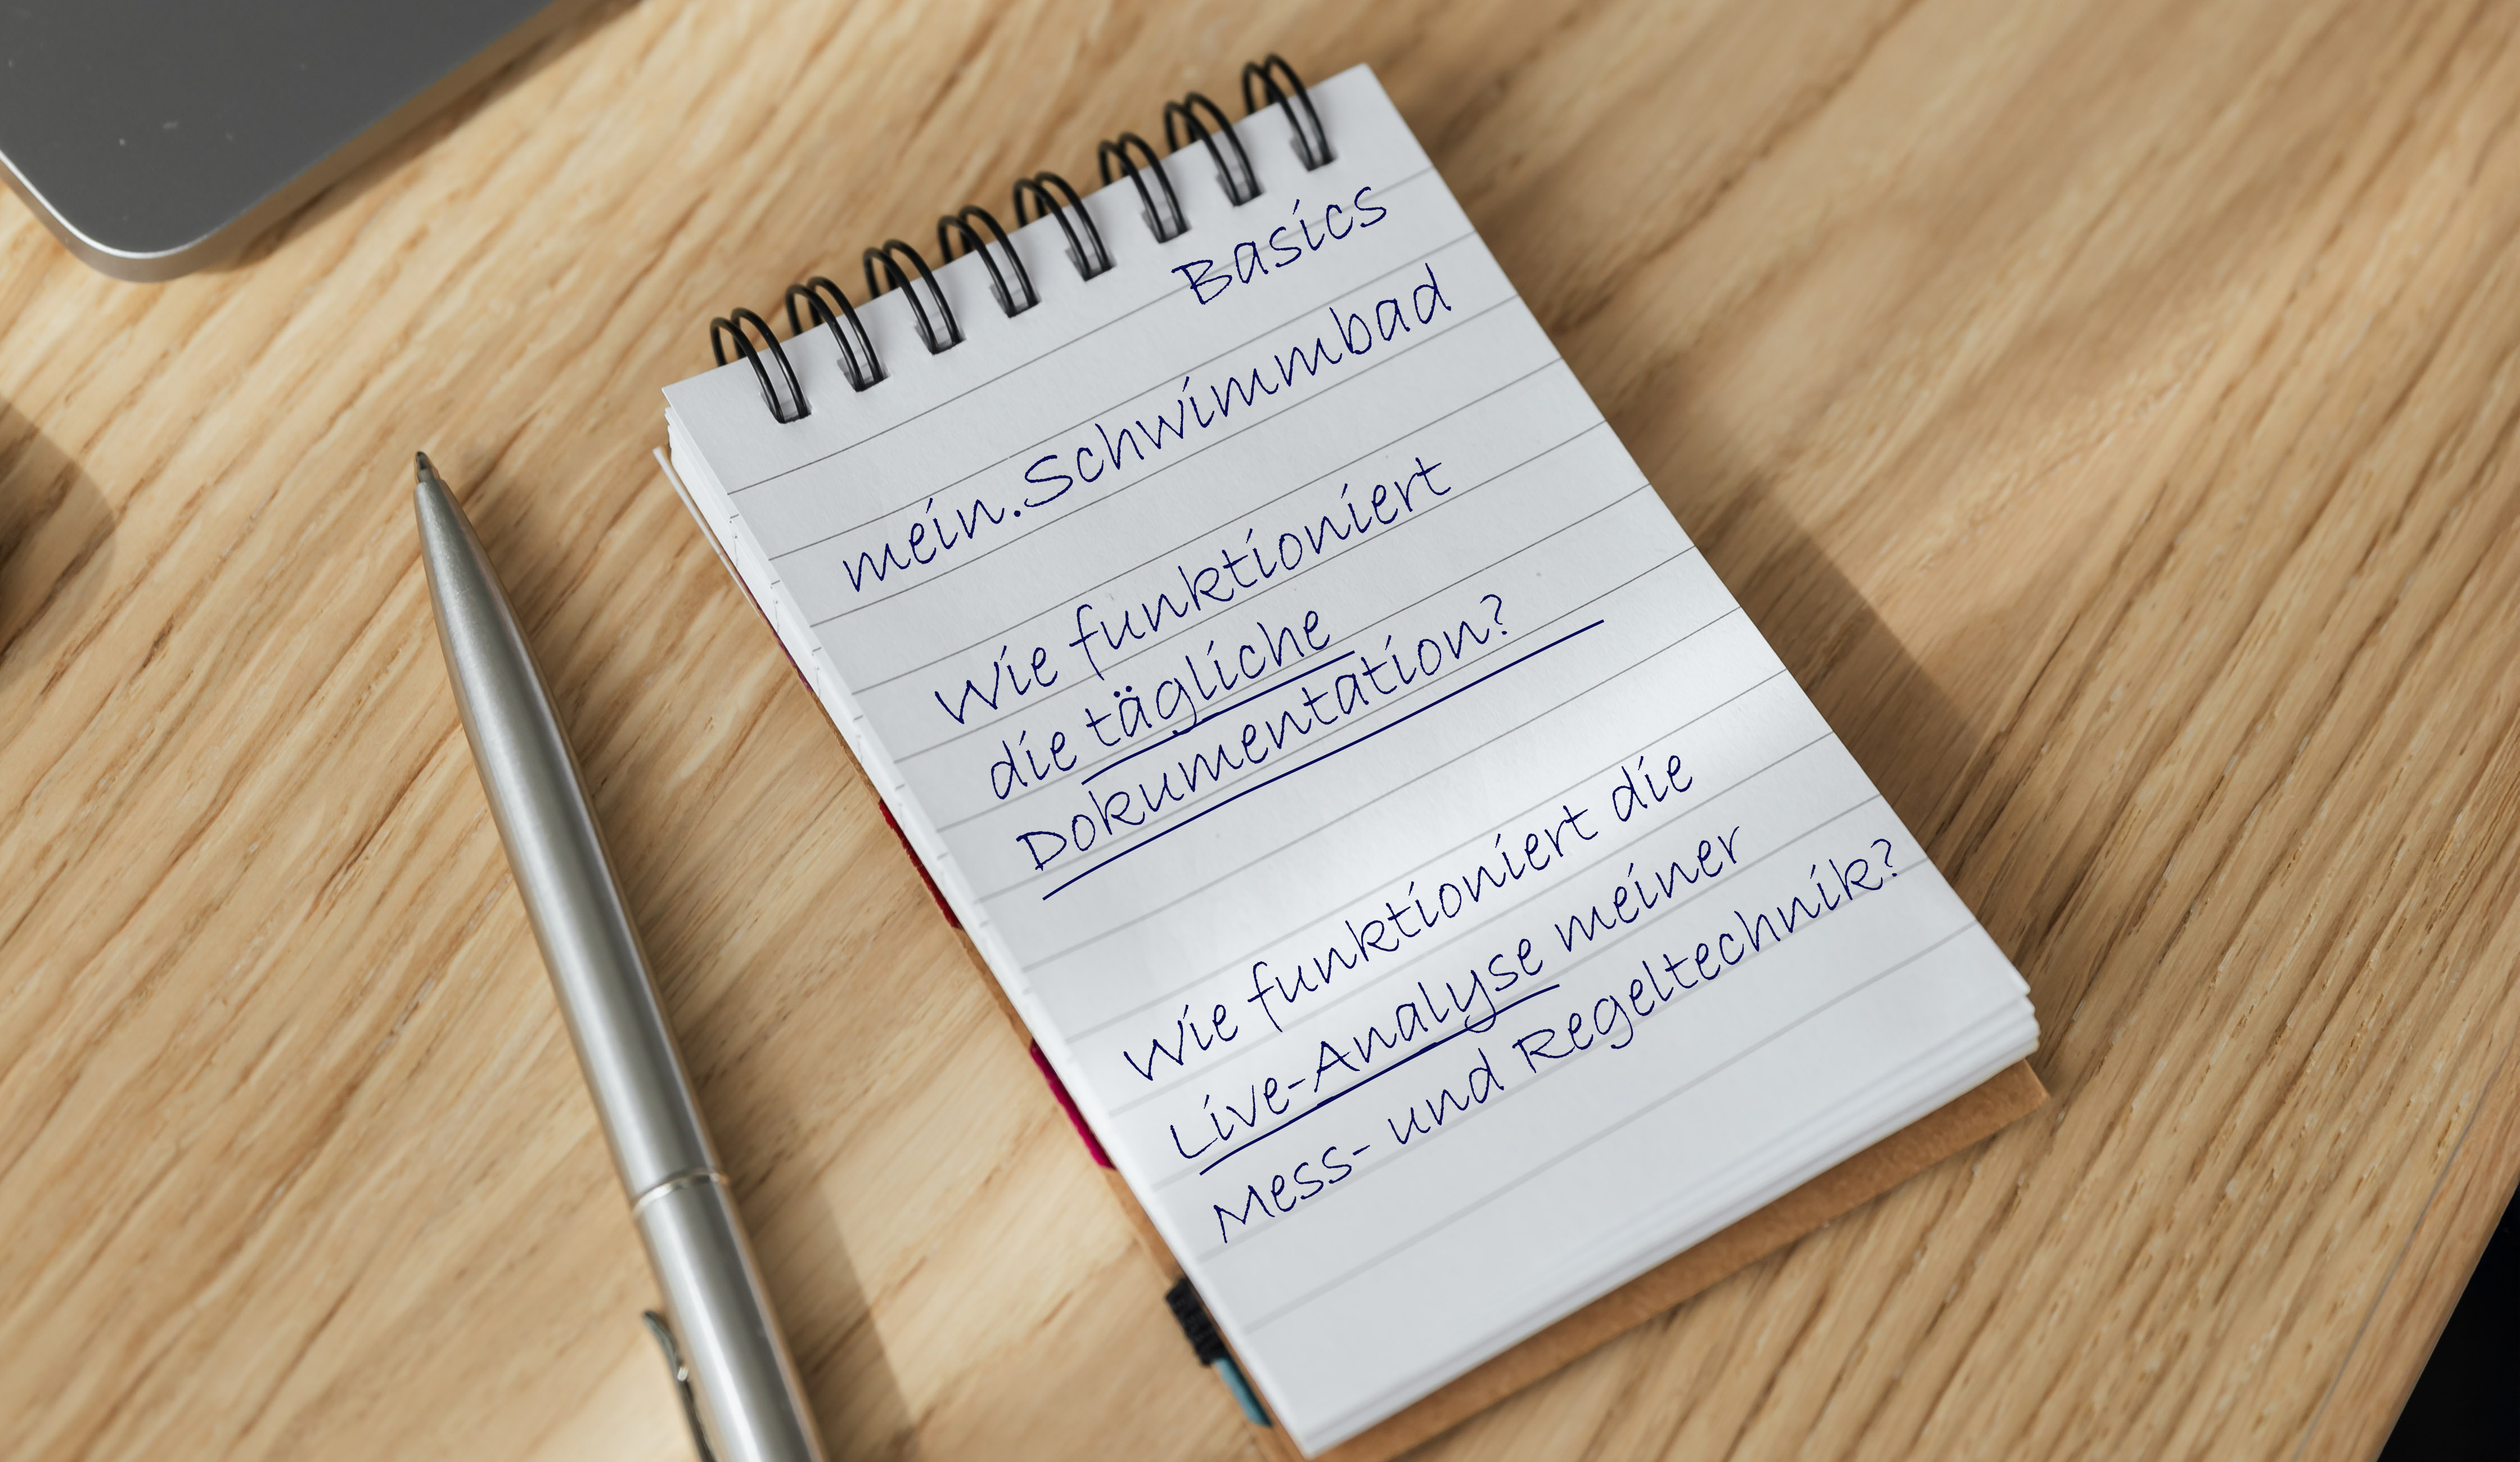 Basics
mein.Schwimmbad
Wie funktioniert
die tägliche
Dokumentation?
Wie funktioniert die
Live-Analyse meiner
Mess- und Regeltechnik?